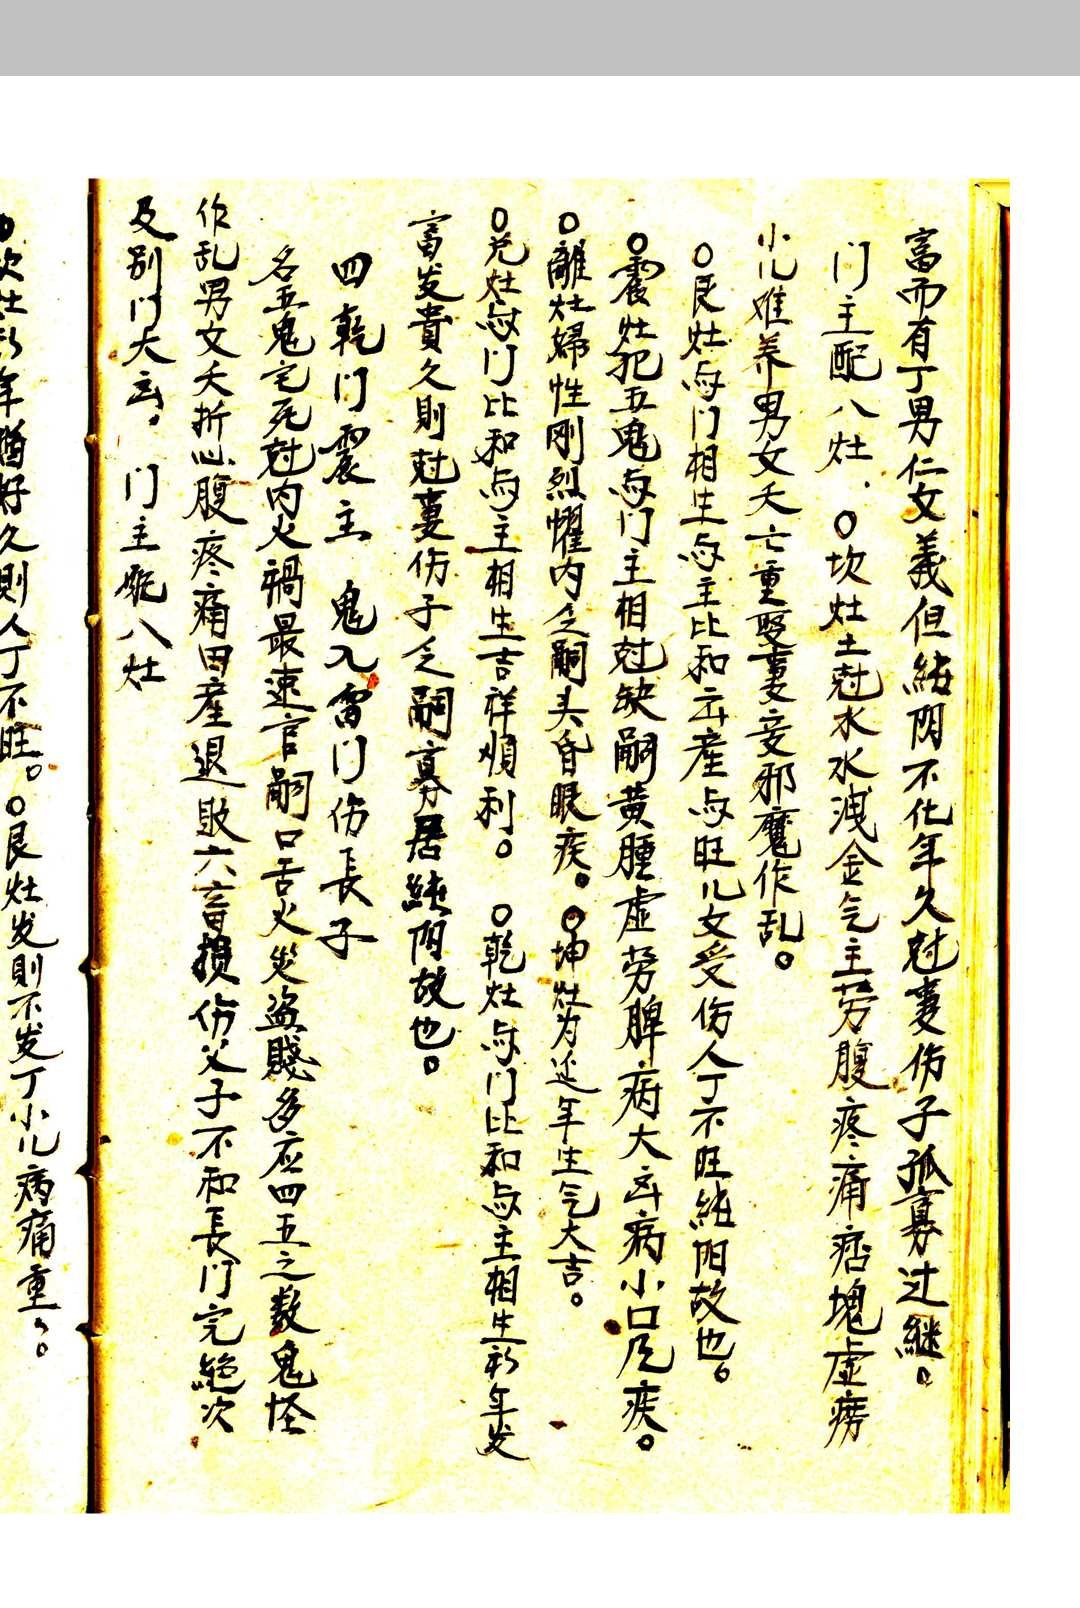 富而有丁男仁女義但純阴不化年久尅妻伤子孤寡过継。
门主配八灶、〇坎灶土尅水水洩金气主劳腹疼痛痞塊虚痨
小儿难养男女夭亡重娶妻妾邪魔作乱。
〇艮灶与门相生与主比和田產与旺儿女受伤人丁不旺純阳故也。
〇震灶犯五鬼与门主相尅缺嗣黃腫虚劳脾病大凶病小口凡疾。
〇離灶婦性刚烈懼内乏嗣头昏眼疾。〇坤灶为延年生气大吉。
〇兑灶与门比和与主相生吉祥順利。〇乾灶与门比和与主相生初年发
富发貴久則尅妻伤子乏嗣寡居純阴故也。
四乾门震主 鬼入雷门伤長子
名五鬼宅死尅内火禍最速官嗣口舌火災盗賤多应四五之数鬼怪
作乱男女夭折心腹疼痛田產退敗六畜損伤父子不和長门完絕次
及别门大凶。门主配八灶
坎灶初年猶好久則人丁不旺。〇艮灶发則不发丁小儿病痛重。